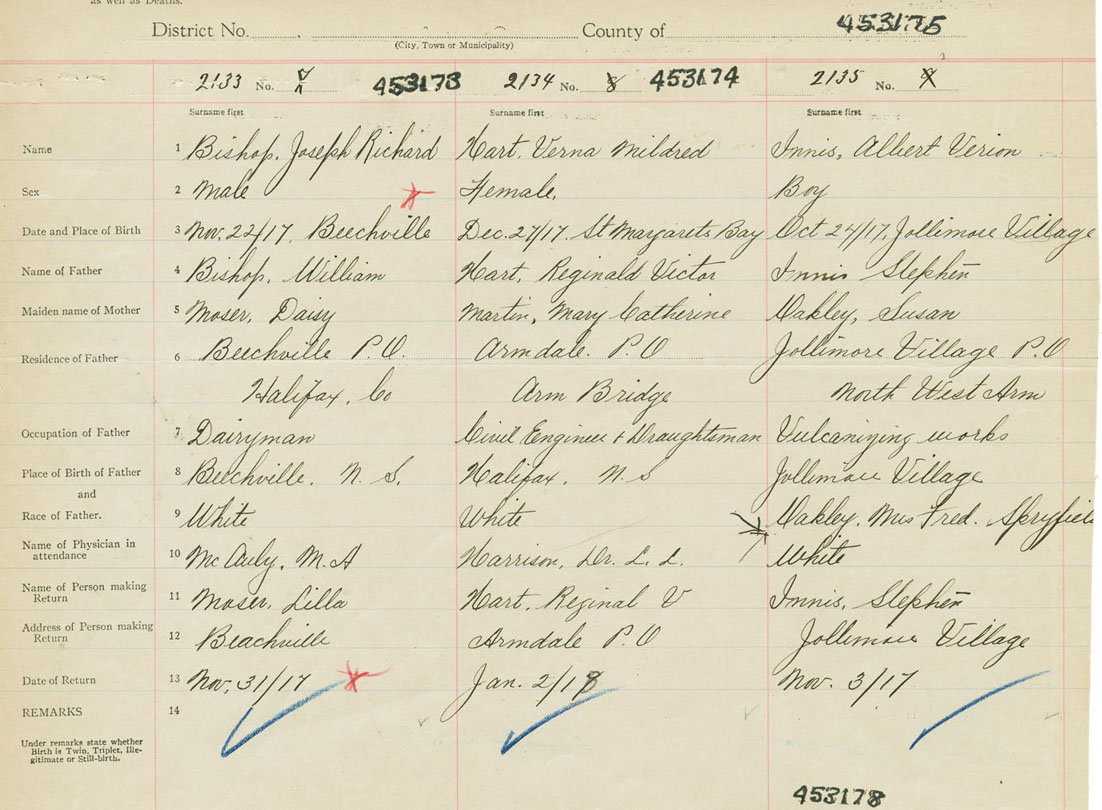 as well as Deaths.
District No. County of 453175
(City, Town or Municipality)
2133 No. 453173 2134 No. 8 453174 2135 No.
Surname first Surname first Surname first
Name 1 Bishop, Joseph Richard Hart, Verna Mildred Innis, Albert Verion
Sex 2 Male Female, Boy
Date and Place of Birth 3 Nov. 22/17, Beechville Dec. 27/17. St Margarets Bay Oct 24/17, Jollimore Village
Name of Father 4 Bishop, William Hart, Reginald Victor Innis Stephen
Maiden name of Mother 5 Moser, Daisy Martin, Mary Catherine Oakley, Susan
Residence of Father 6 Beechville P.O. Armdale. P.O Jollimore Village P.O
Halifax, Co Arm Bridge North West Arm
Occupation of Father 7 Dairyman Civil Engineer & Draughtsman Vulcanizing works
Place of Birth of Father 8 Beechville, N. S. Halifax, N. S Jollimore Village
and
Race of Father. 9 White White Oakley, Mrs Fred. Spryfield
Name of Physician in
attendance 10 McAuly, M. A Harrison, Dr. L. L. White
Name of Person making
Return 11 Moser, Lilla Hart, Reginal V Innis, Stephen
Address of Person making
Return 12 Beachville Armdale P.O Jollimore Village
Date of Return 13 Nov, 31/17 Jan. 2/18 Nov. 3/17
REMARKS 14
Under remarks state whether
Birth is Twin, Triplet, Ille-
gitimate or Still-birth.
453178